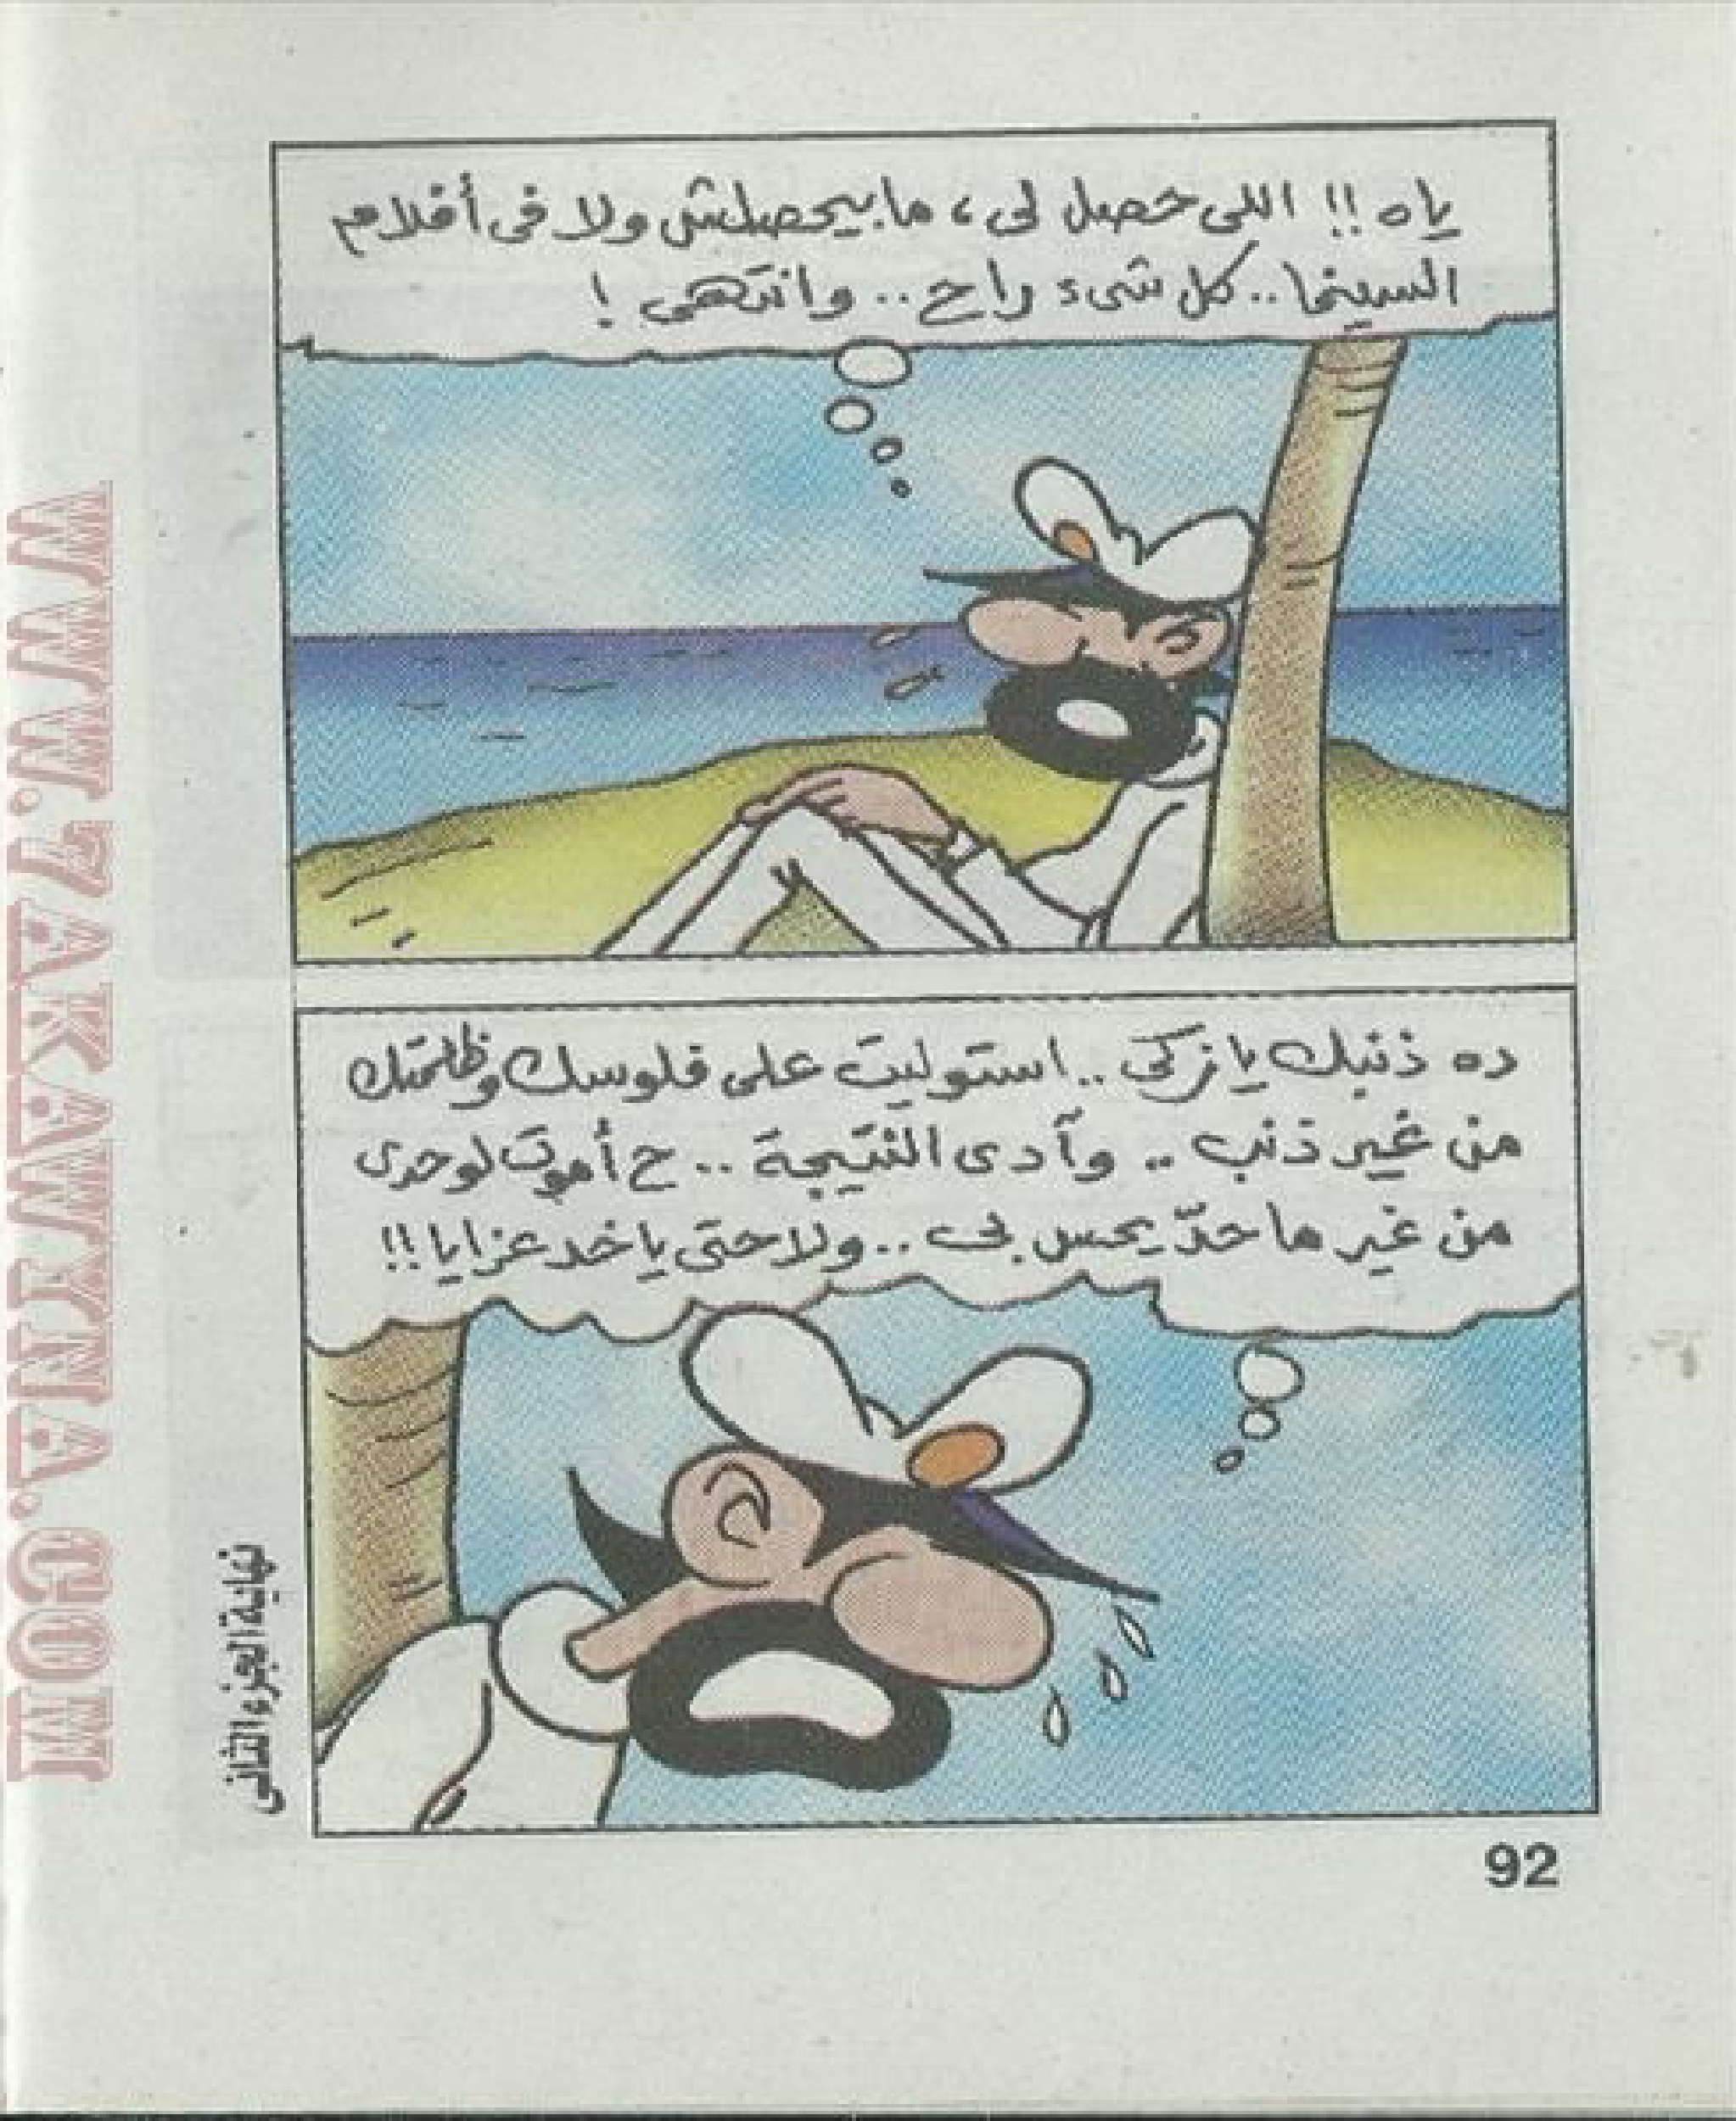 ياه !! اللى حصل لى ، مابيحصلش ولا فى أفلام
السينما .. كل شىء راح .. وانتهى !
ده ذنبك يا زكى .. استوليت على فلوسك وظلمتك
من غير ذنب .. وآدى النتيجة .. ح أموت لوحدى
من غير ما حدّ يحس بى .. ولا حتى ياخد عزايا !!
نهاية الجزء الثانى
92
WWW.7AKAWYNA.COM